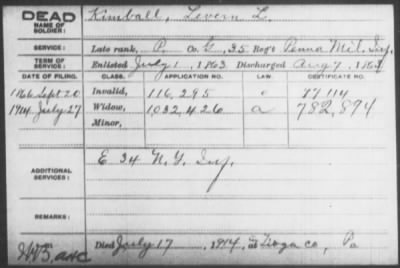 DEAD
NAME OF SOLDIER:
Kimball, Levern L.
SERVICE: Late rank, P. Co. G, 35 Reg't Penna Mil. Inf.
TERM OF SERVICE: Enlisted July 1, 1863 Discharged Aug 7, 1863
DATE OF FILING. CLASS. APPLICATION NO. LAW. CERTIFICATE NO.
1866 Sept 20 Invalid, 116,295 77114
1914 July 27 Widow, 1,032,426 a 782,894
Minor,
ADDITIONAL SERVICES: E 34 N.Y. Inf.
REMARKS:
Died July 17, 1914, at Tioga co, Pa